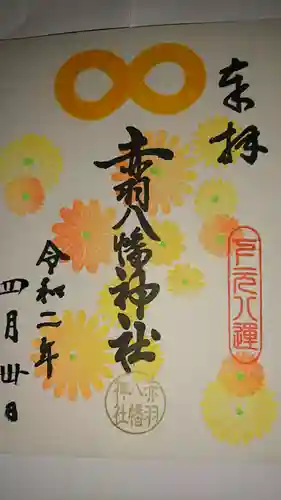 奉拝
戸元八運
赤羽八幡神社
赤羽
八幡
神社
令和二年
四月卅日